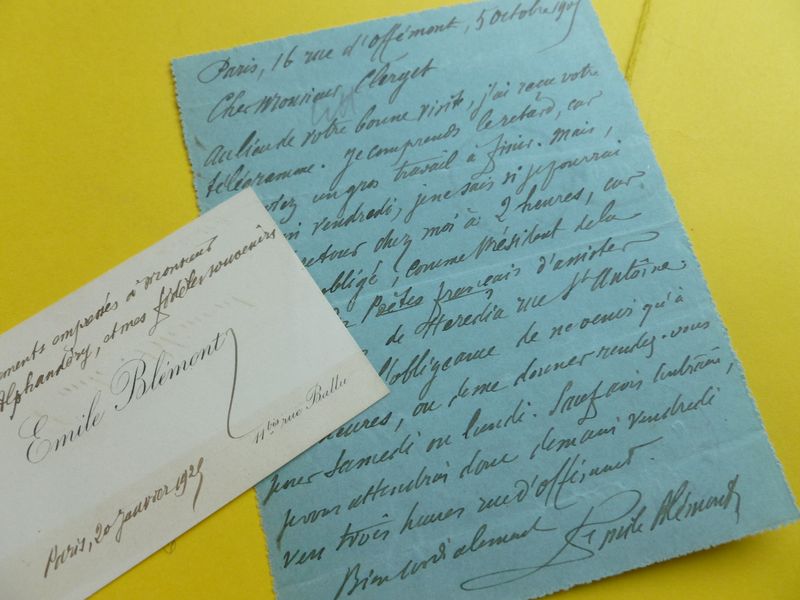 Paris, 16 rue d'Offémont, 5 Octobre 1905
Cher Monsieur Clerget
Au lieu de votre bonne visite, j'ai reçu votre
télégramme. Je comprends le retard, car
un gros travail à finir. Mais,
vendredi, je ne sais si je pourrai
retour chez moi à 2 heures, car
obligé, comme Président de la
Poètes français d'assister
de Heredia rue St Antoine.
l'obligeance de ne venir qu'à
heures, ou de me donner rendez-vous
pour Samedi ou lundi. Sauf avis contraire,
je vous attendrai donc demain vendredi
vers trois heures rue d'Offémont.
Bien cordialement
Emile Blémont
ements empressés à Monsieur
Alphandéry, et mes fidèles souvenirs
Emile Blémont
11 bis rue Ballu
Paris, 20 janvier 1925